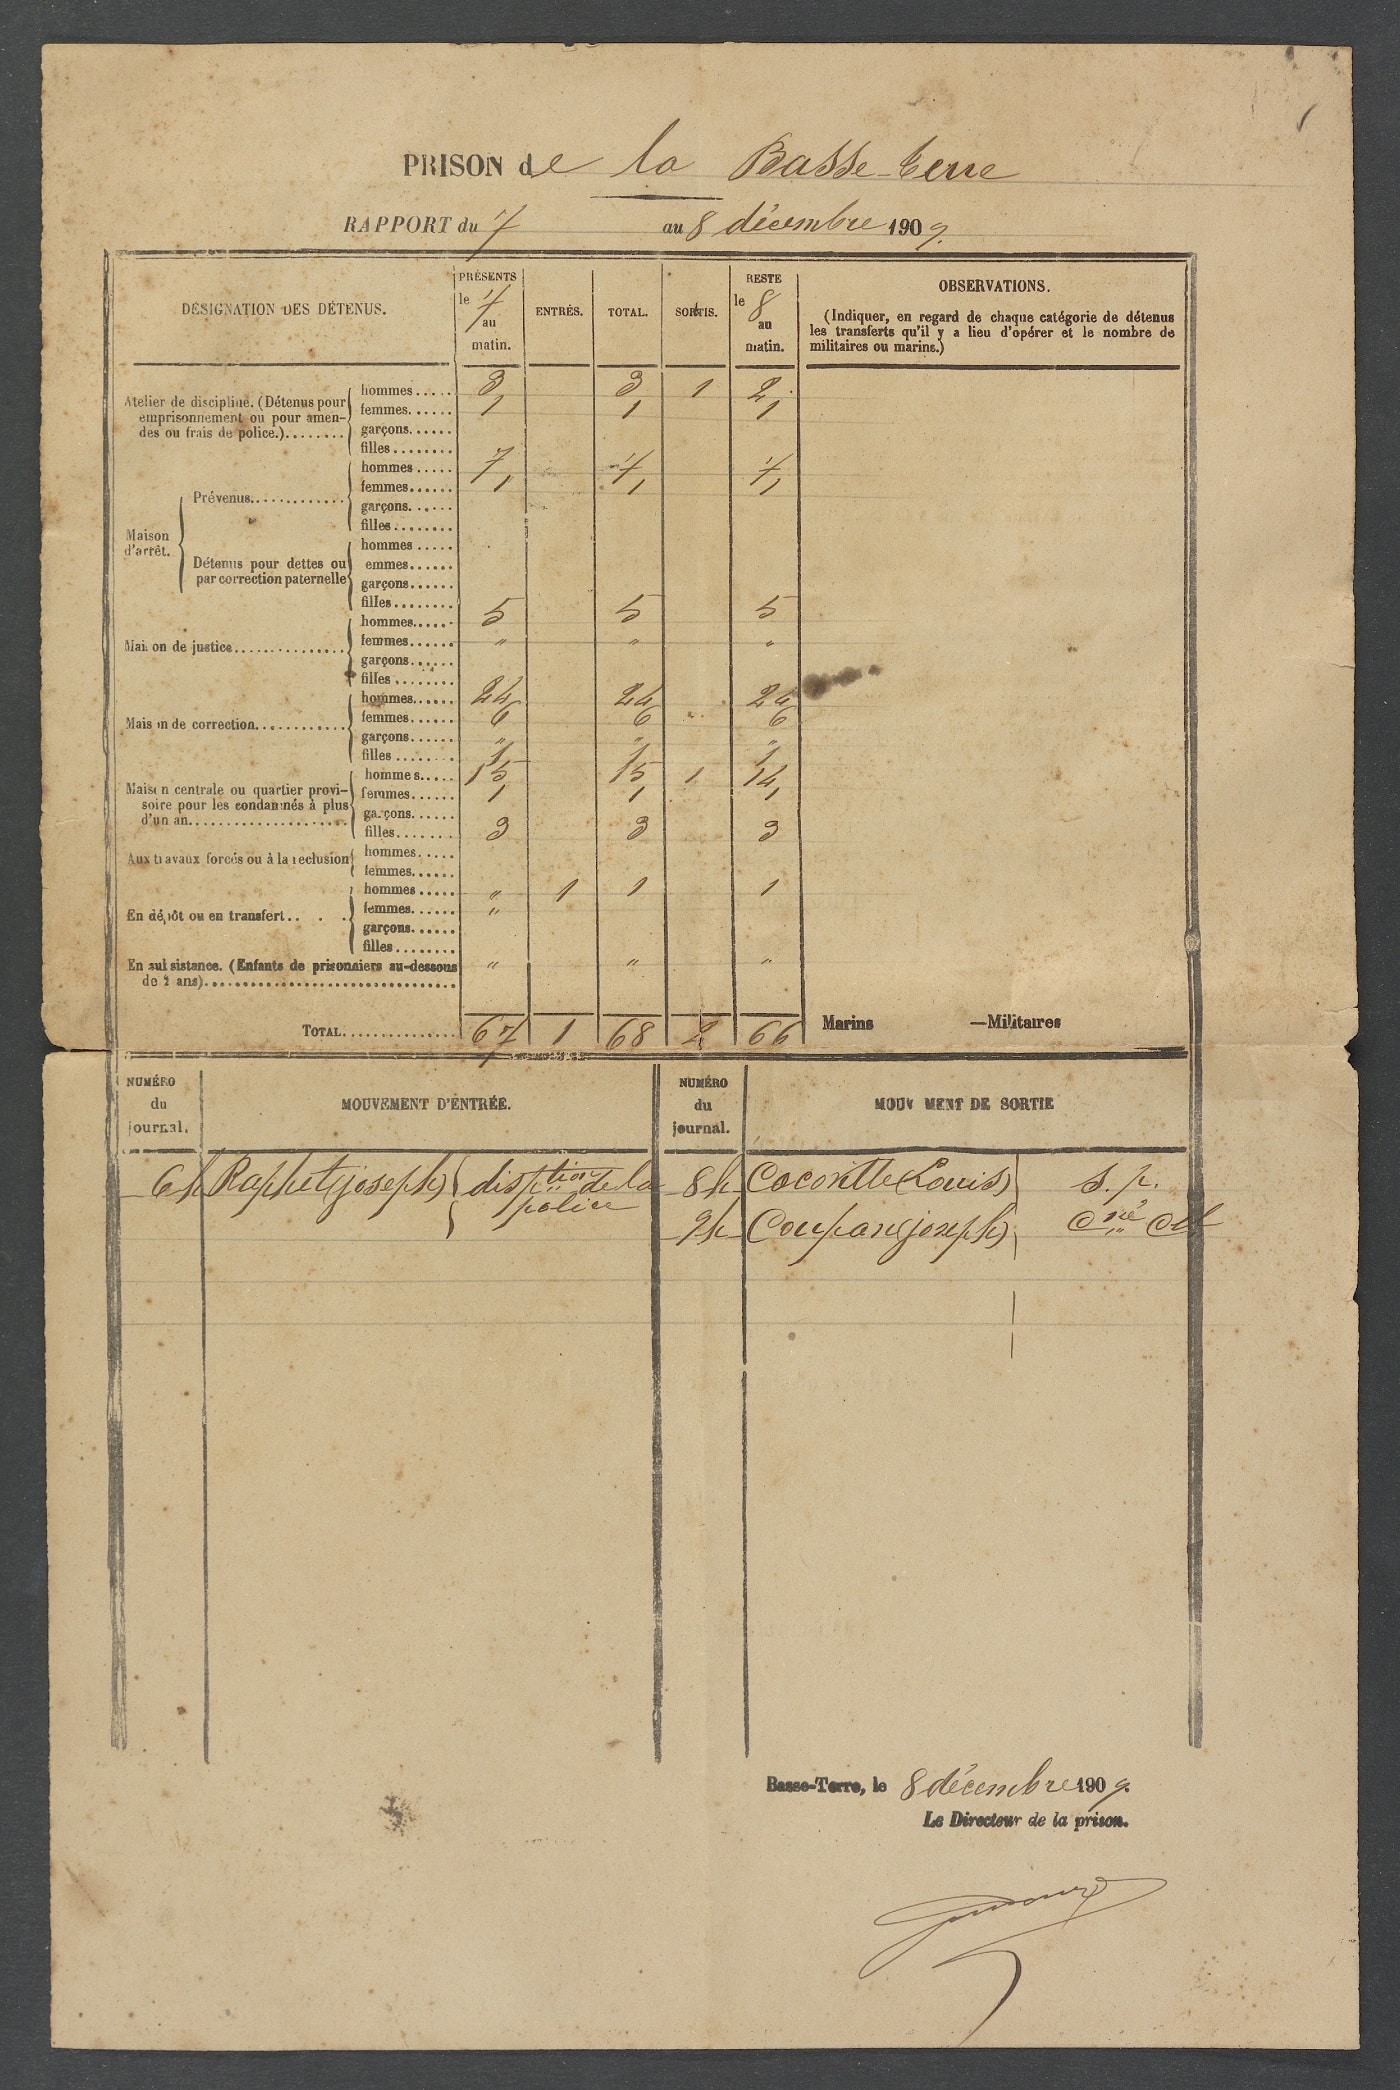 PRISON de la Basse-terre
RAPPORT du 7 au 8 décembre 1909.
DÉSIGNATION DES DÉTENUS.
PRÉSENTS le 7 au matin.
ENTRÉS.
TOTAL.
SORTIS.
RESTE le 8 au matin.
OBSERVATIONS.
(Indiquer, en regard de chaque catégorie de détenus
les transferts qu'il y a lieu d'opérer et le nombre de
militaires ou marins.)
Atelier de discipline. (Détenus pour
emprisonnement ou pour amen-
des ou frais de police.)........
hommes..... 3 3 1 2
femmes...... 1 1 1
garçons......
filles........
Maison
d'arrêt.
Prévenus.............
hommes..... 7 7 7
femmes...... 1 1 1
garçons......
filles........
Détenus pour dettes ou
par correction paternelle
hommes.....
emmes......
garçons......
filles........
Maison de justice...............
hommes...... 5 5 5
femmes...... " " "
garçons......
filles........
Maison de correction............
hommes...... 24 24 24
femmes...... 6 6 6
garçons...... " " "
filles........ 1 1 1
Maison centrale ou quartier provi-
soire pour les condamnés à plus
d'un an.....................
hommes..... 15 15 1 14
femmes...... 1 1 1
garçons......
filles........ 3 3 3
Aux travaux forcés ou à la reclusion
hommes.....
femmes......
En dépôt ou en transfert.. . .
hommes..... " 1 1 1
femmes...... "
garçons......
filles........
En subsistance. (Enfants de prisonniers au-dessous
de 2 ans)................................. " " "
TOTAL............... 67 1 68 2 66
Marins —Militaires
NUMÉRO
du
journal.
MOUVEMENT D'ENTRÉE.
NUMÉRO
du
journal.
MOUV MENT DE SORTIE
6h Raphet (joseph) disp tion de la
police
8h Cocontte (Louis) s. p.
9h Coupan (joseph)
Basse-Terre, le 8 décembre 1909.
Le Directeur de la prison.